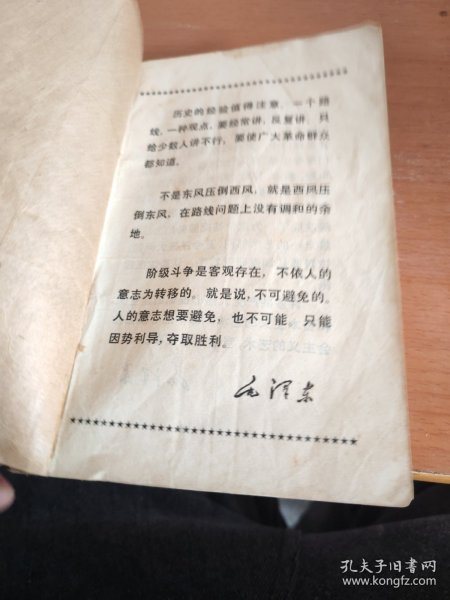 ****************************************
历史的经验值得注意，一个路
线，一种观点，要经常讲，反复讲。只
给少数人讲不行，要使广大革命群众
都知道。
不是东风压倒西风，就是西风压
倒东风，在路线问题上没有调和的余
地。
阶级斗争是客观存在，不依人的
意志为转移的。就是说，不可避免的。
人的意志想要避免，也不可能。只能
因势利导，夺取胜利。
毛泽东
****************************************
孔夫子旧书网
www.kongfz.com